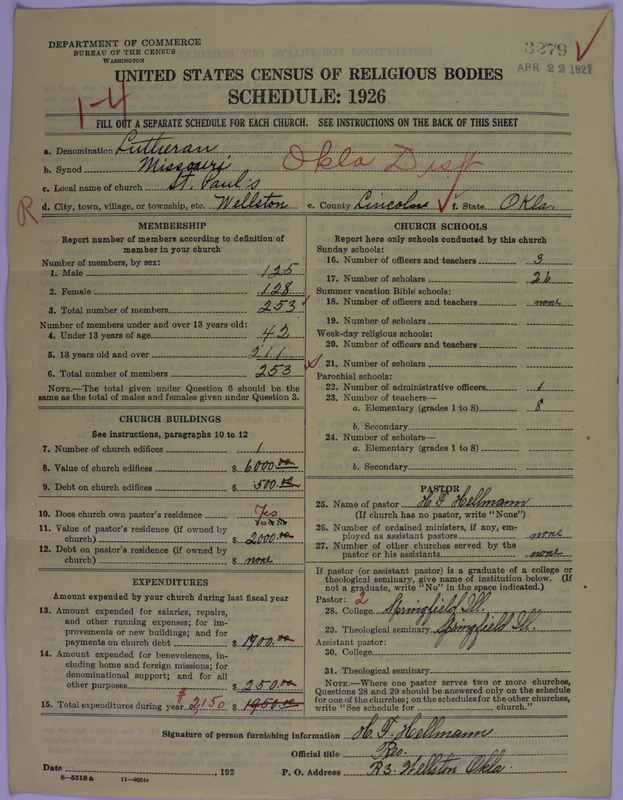 DEPARTMENT OF COMMERCE
BUREAU OF THE CENSUS
WASHINGTON
3279
APR 22 1927
UNITED STATES CENSUS OF RELIGIOUS BODIES
SCHEDULE: 1926
1-4
FILL OUT A SEPARATE SCHEDULE FOR EACH CHURCH. SEE INSTRUCTIONS ON THE BACK OF THIS SHEET
a. Denomination Lutheran
b. Synod Missouri Okla Dist
c. Local name of church St. Paul's
R d. City, town, village, or township, etc. Wellston e. County Lincoln f. State Okla.
MEMBERSHIP
Report number of members according to definition of
member in your church
Number of members, by sex:
1. Male 125
2. Female 128
3. Total number of members 253
Number of members under and over 13 years old:
4. Under 13 years of age 42
5. 13 years old and over 211
6. Total number of members 253
NOTE.—The total given under Question 6 should be the
same as the total of males and females given under Question 3.
CHURCH BUILDINGS
See instructions, paragraphs 10 to 12
7. Number of church edifices 1
8. Value of church edifices $ 6000.00
9. Debt on church edifices $ 500.00
10. Does church own pastor's residence Yes
Yes or No
11. Value of pastor's residence (if owned by
church) $ 2000.00
12. Debt on pastor's residence (if owned by
church) $ none
EXPENDITURES
Amount expended by your church during last fiscal year
13. Amount expended for salaries, repairs,
and other running expenses; for im-
provements or new buildings; and for
payments on church debt $ 1900.00
14. Amount expended for benevolences, in-
cluding home and foreign missions; for
denominational support; and for all
other purposes $ 250.00
15. Total expenditures during year $2150 $ 1950.00
CHURCH SCHOOLS
Report here only schools conducted by this church
Sunday schools:
16. Number of officers and teachers 3
17. Number of scholars 26
Summer vacation Bible schools:
18. Number of officers and teachers none
19. Number of scholars
Week-day religious schools:
20. Number of officers and teachers
21. Number of scholars
Parochial schools:
22. Number of administrative officers 1
23. Number of teachers—
a. Elementary (grades 1 to 8) 8
b. Secondary
24. Number of scholars—
a. Elementary (grades 1 to 8)
b. Secondary
PASTOR
25. Name of pastor H. F. Hellmann
(If church has no pastor, write "None")
26. Number of ordained ministers, if any, em-
ployed as assistant pastors none
27. Number of other churches served by the
pastor or his assistants none
If pastor (or assistant pastor) is a graduate of a college or
theological seminary, give name of institution below. (If
not a graduate, write "No" in the space indicated.)
Pastor: 2
28. College Springfield Ill.
29. Theological seminary Springfield Ill.
Assistant pastor:
30. College
31. Theological seminary
NOTE.—Where one pastor serves two or more churches,
Questions 28 and 29 should be answered only on the schedule
for one of the churches; on the schedules for the other churches,
write "See schedule for church."
Signature of person furnishing information H. F. Hellmann
Official title Rev.
Date , 192 P. O. Address R3. Wellston Okla.
8—5518a 11—9024a